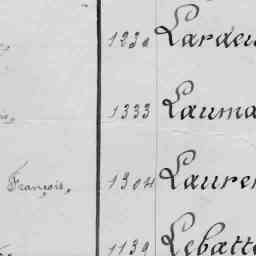 1230 Lardeu
1333 Lauma
François, 1304 Lauren
1139 Lebatte